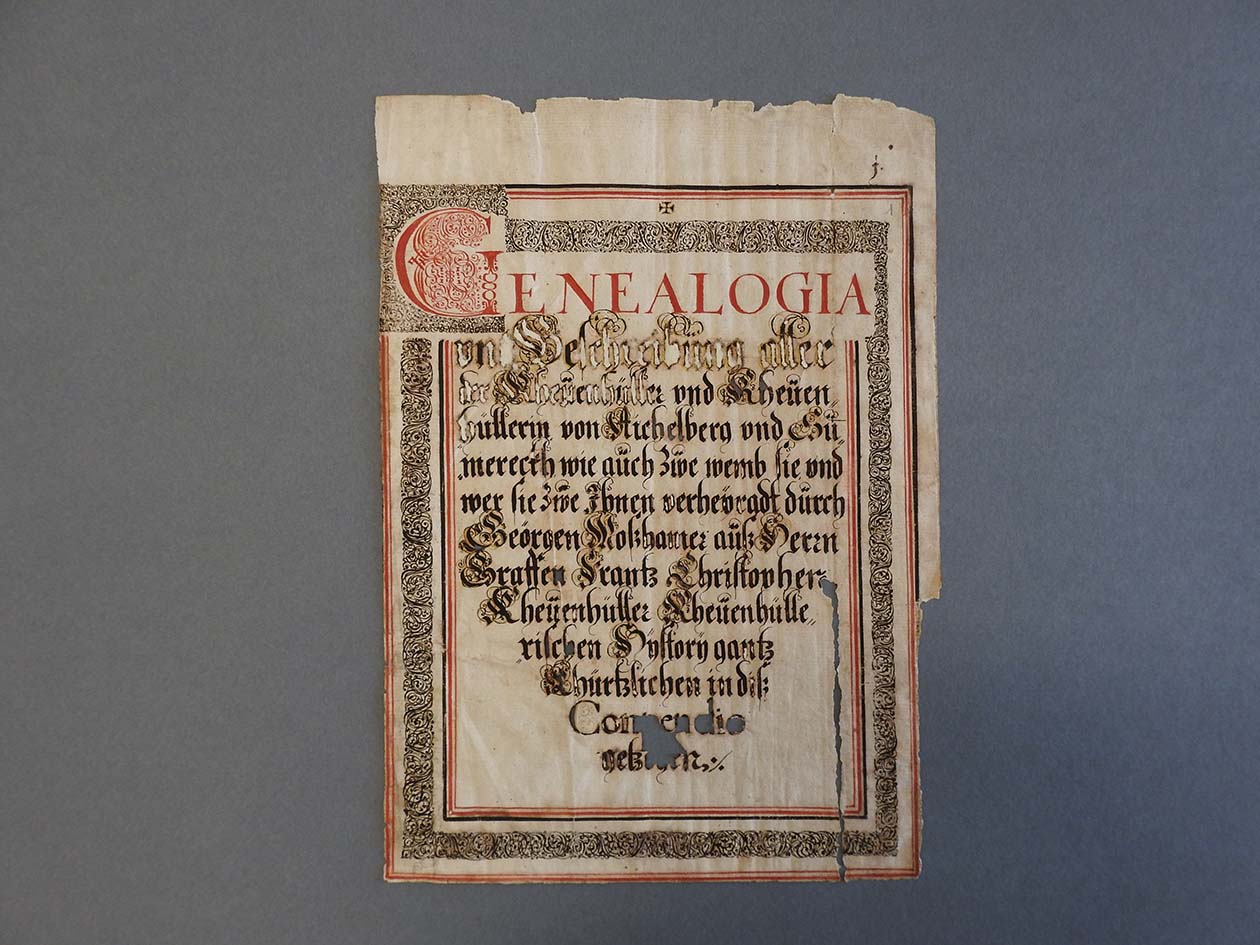 j.
GENEALOGIA
vnd Beschreibüng aller
der Kheüenhüller vnd Kheüen,
hüllerin von Aichelberg vnd Sū,
mereckh wie aüch züe wemb sie vnd
wer sie züe Ihnen verheÿradt dürch
Geörgen Moßhamer aüß Herrn
Graffen Frantz Christopher
Kheüenhüller Kheüenhülle,
rischen Hÿstorÿ gantz
Khürtzlichen in diß
Compendio
getzogen